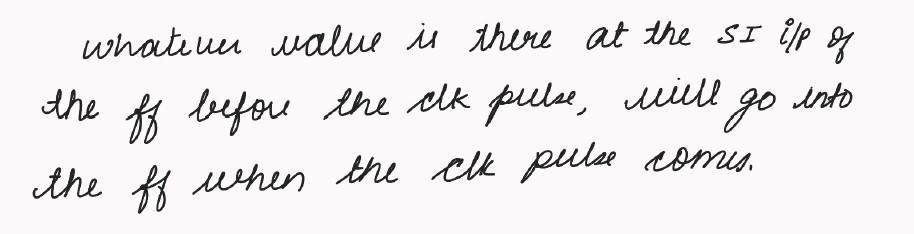 whatever value is there at the SI i/p of
the ff before the clk pulse, will go into
the ff when the clk pulse comes.